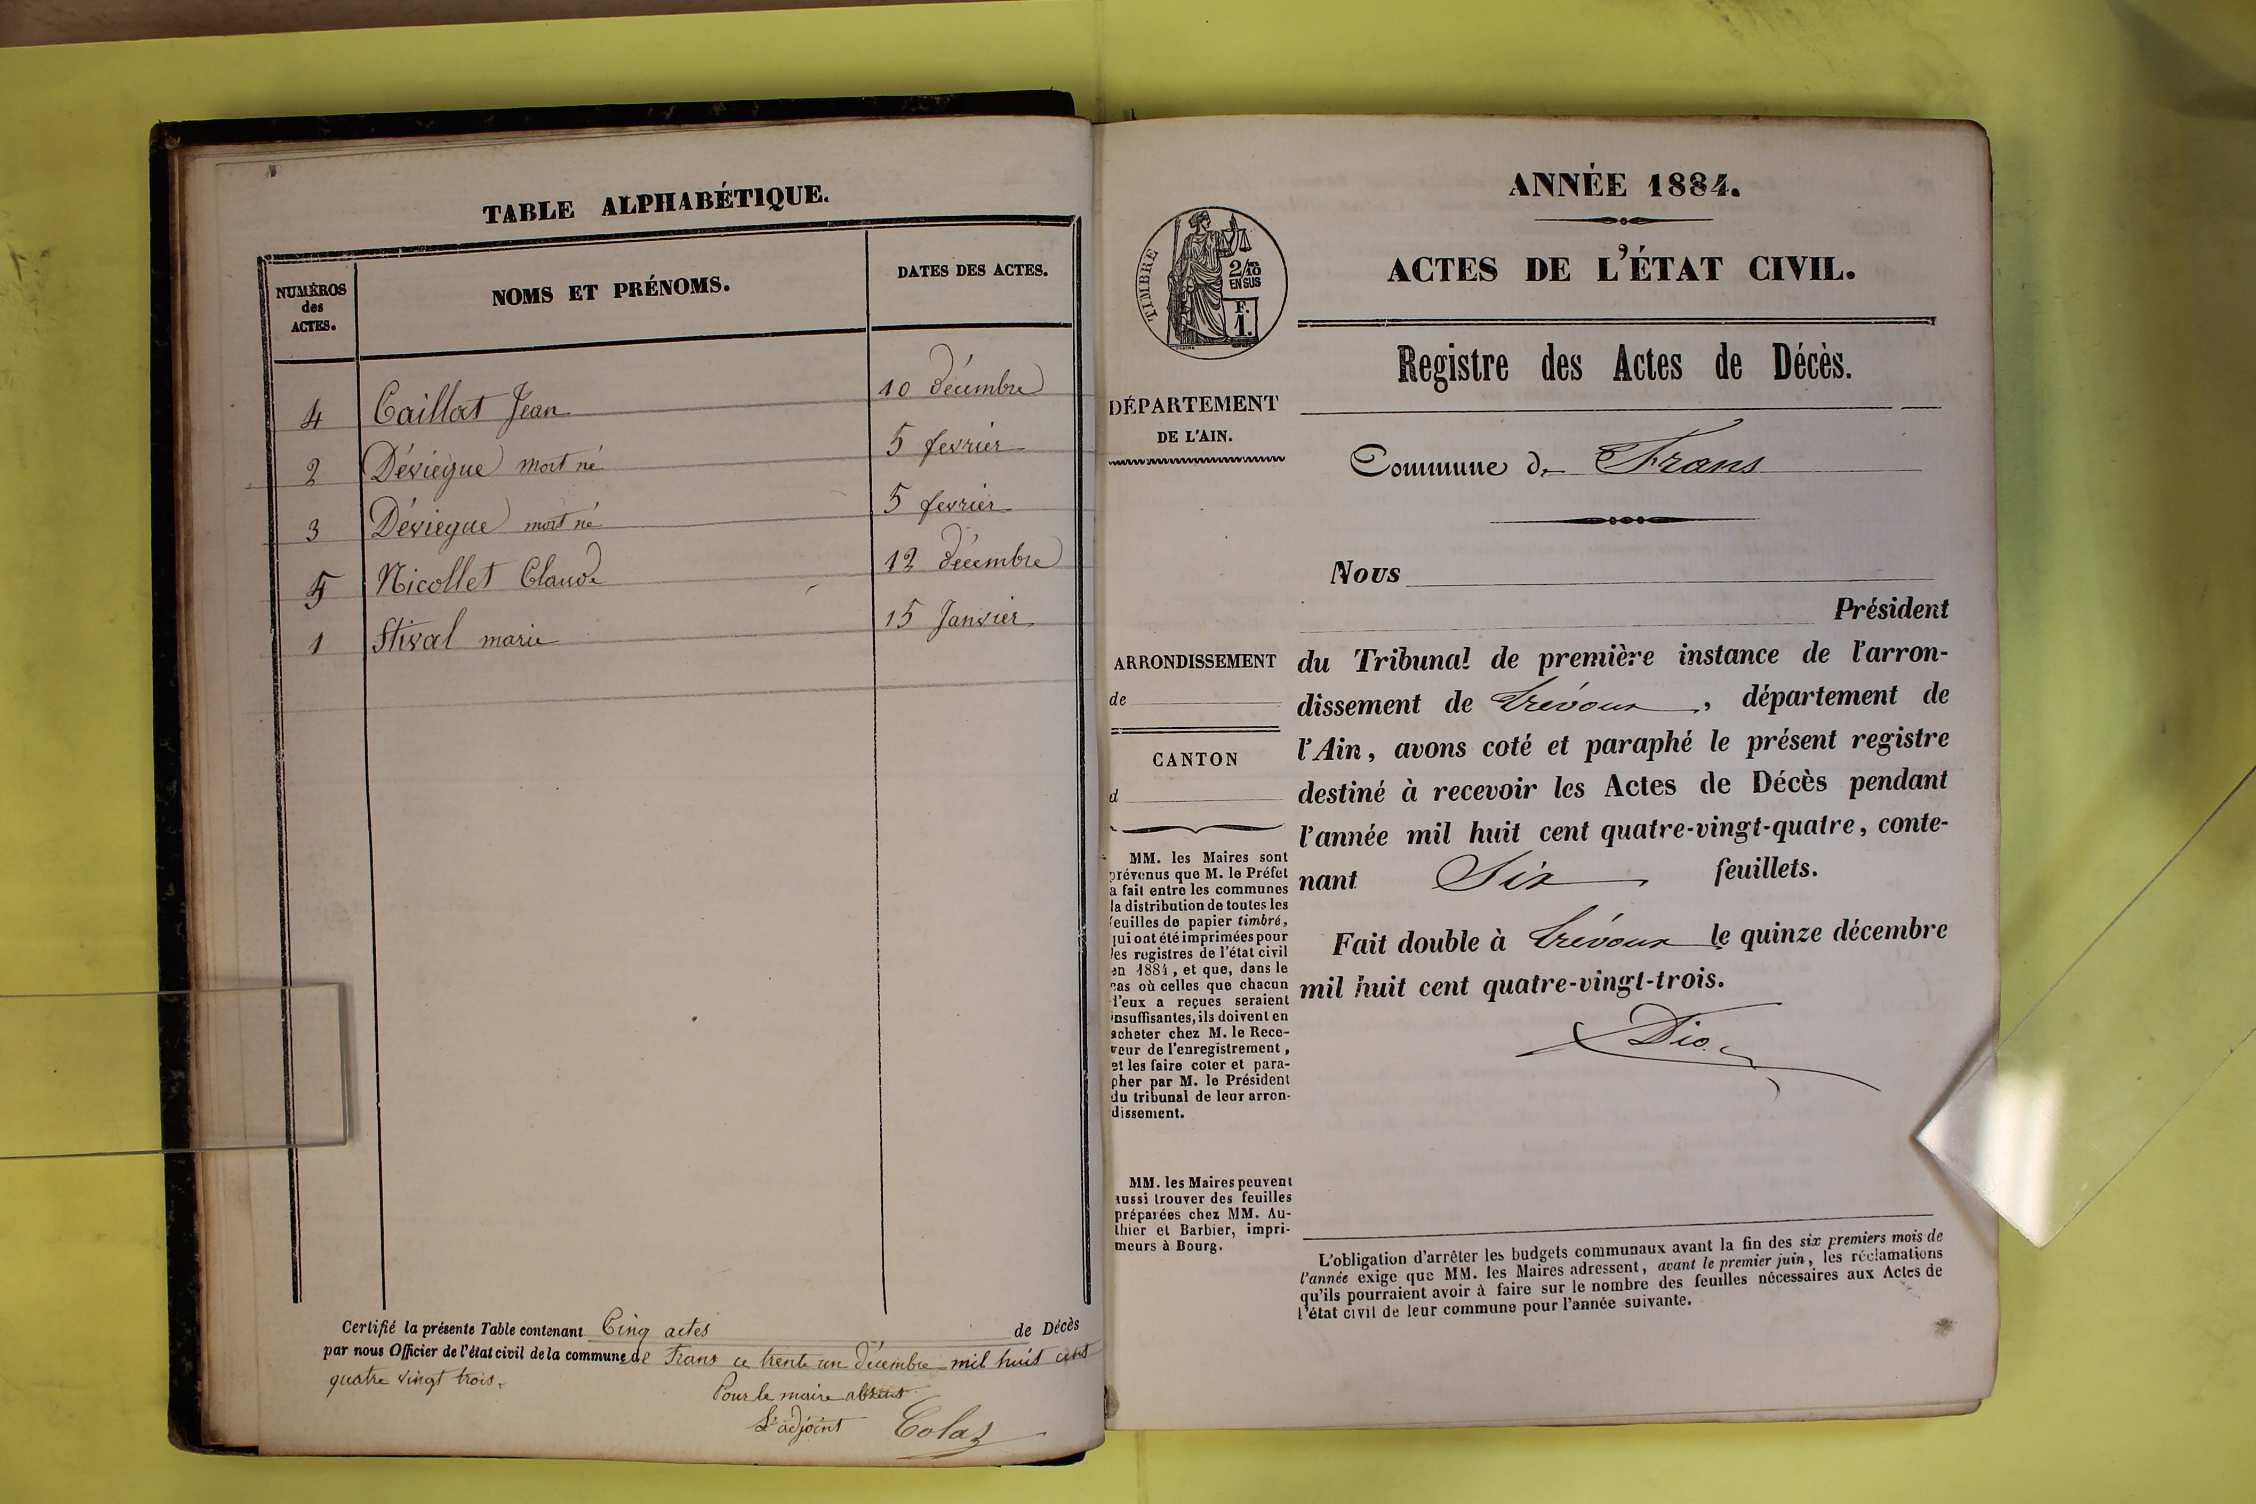 TABLE ALPHABÉTIQUE.
NUMÉROS
des
ACTES.
NOMS ET PRÉNOMS.
DATES DES ACTES.
4 Caillat Jean 10 décembre
2 Dévieque mort né 5 fevrier
3 Dévieque mort né 5 fevrier
5 Nicollet Claude 12 décembre
1 Stival marie 15 Janvier
Certifié la présente Table contenant Cinq actes de Décès
par nous Officier de l'état civil de la commune de Frans ce trente un décembre mil huit cent
quatre vingt trois.
Pour le maire absent
L'adjoint Colas
ANNÉE 1884.
ACTES DE L'ÉTAT CIVIL.
TIMBRE
2/10
EN SUS
F.
1.
Registre des Actes de Décès.
DÉPARTEMENT
DE L'AIN.
Commune de Frans
Nous
Président
du Tribunal de première instance de l'arron-
dissement de Trévoux, département de
l'Ain, avons coté et paraphé le présent registre
destiné à recevoir les Actes de Décès pendant
l'année mil huit cent quatre-vingt-quatre, conte-
nant Six feuillets.
Fait double à Trévoux le quinze décembre
mil huit cent quatre-vingt-trois.
ARRONDISSEMENT
de
CANTON
d
MM. les Maires sont
prévenus que M. le Préfet
a fait entre les communes
la distribution de toutes les
feuilles de papier timbré,
qui ont été imprimées pour
les registres de l'état civil
en 1884, et que, dans le
cas où celles que chacun
d'eux a reçues seraient
insuffisantes, ils doivent en
acheter chez M. le Rece-
veur de l'enregistrement,
et les faire coter et para-
pher par M. le Président
du tribunal de leur arron-
dissement.
MM. les Maires peuvent
aussi trouver des feuilles
préparées chez MM. Au-
thier et Barbier, impri-
meurs à Bourg.
L'obligation d'arrêter les budgets communaux avant la fin des six premiers mois de
l'année exige que MM. les Maires adressent, avant le premier juin, les réclamations
qu'ils pourraient avoir à faire sur le nombre des feuilles nécessaires aux Actes de
l'état civil de leur commune pour l'année suivante.